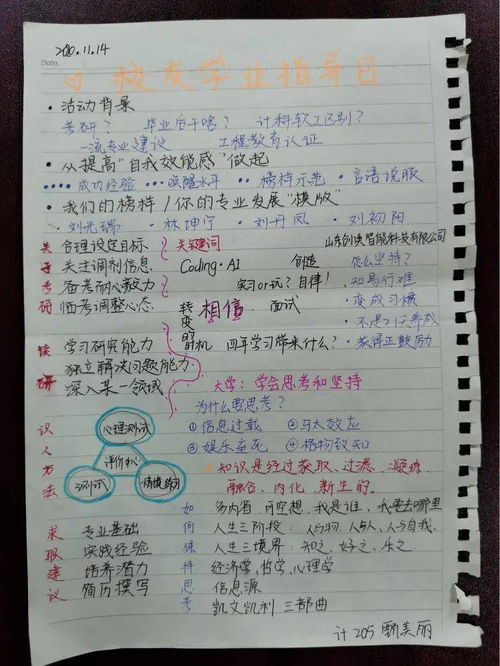 2020.11.14
Date
校友学业指导日
• 活动背景
考研？ 毕业后干啥？ 计科软工区别？
一流专业建设 工程教育认证
• 从提高"自我效能感"做起
•••• 成功经验 •••• 唤醒水平 •• 榜样示范 • 言语说服
• 我们的榜样 / 你的专业发展"模版"
刘光瑞 林坤宁 刘丹凤 刘初阳
关于考研
合理设定目标
关注调剂信息
备考耐心毅力
师考调整心态
关键词
山东创瑛智能科技有限公司
Coding·AI 创造 怎么坚持？
实习or玩？自律！ • 知易行难
转变的时机 相信 面试 • 变成习惯
• 不是21天养成
四年学习带来什么？ • 获得正鼓励
读研
学习研究能力
独立解决问题能力
深入某一领域
大学：学会思考和坚持
为什么要思考？
①信息过载 ②马太效应
③娱乐至死 ④格物致知
• 知识是经过获取、过滤、凝练、
融合、内化、新生的。
识人方法
心理测试
评价中心
情境练习
如何保持思考
多内省，可空想，我是谁，我要去哪里
人生三阶段：人与物、人与人、人与自我
人生三境界：知之、好之、乐之
经济学、哲学、心理学
信息源
凯文凯利 三部曲
求职建议
专业基础
实践经验
培养潜力
简历撰写
计205 甄美丽